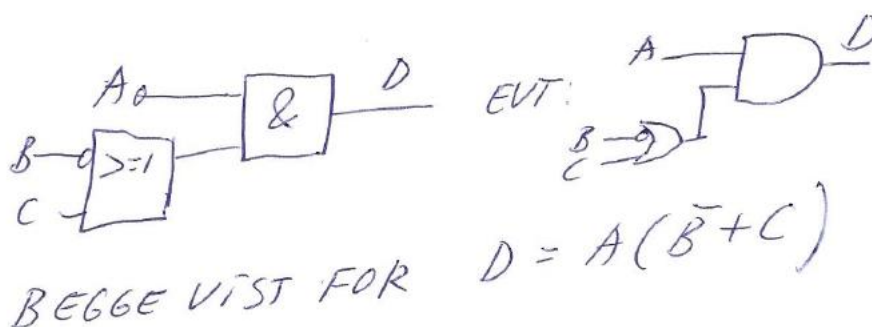 A
B
C
>=1
&
D
EVT:
A
B
C
D
BEGGE VIST FOR D = A(B̄+C)